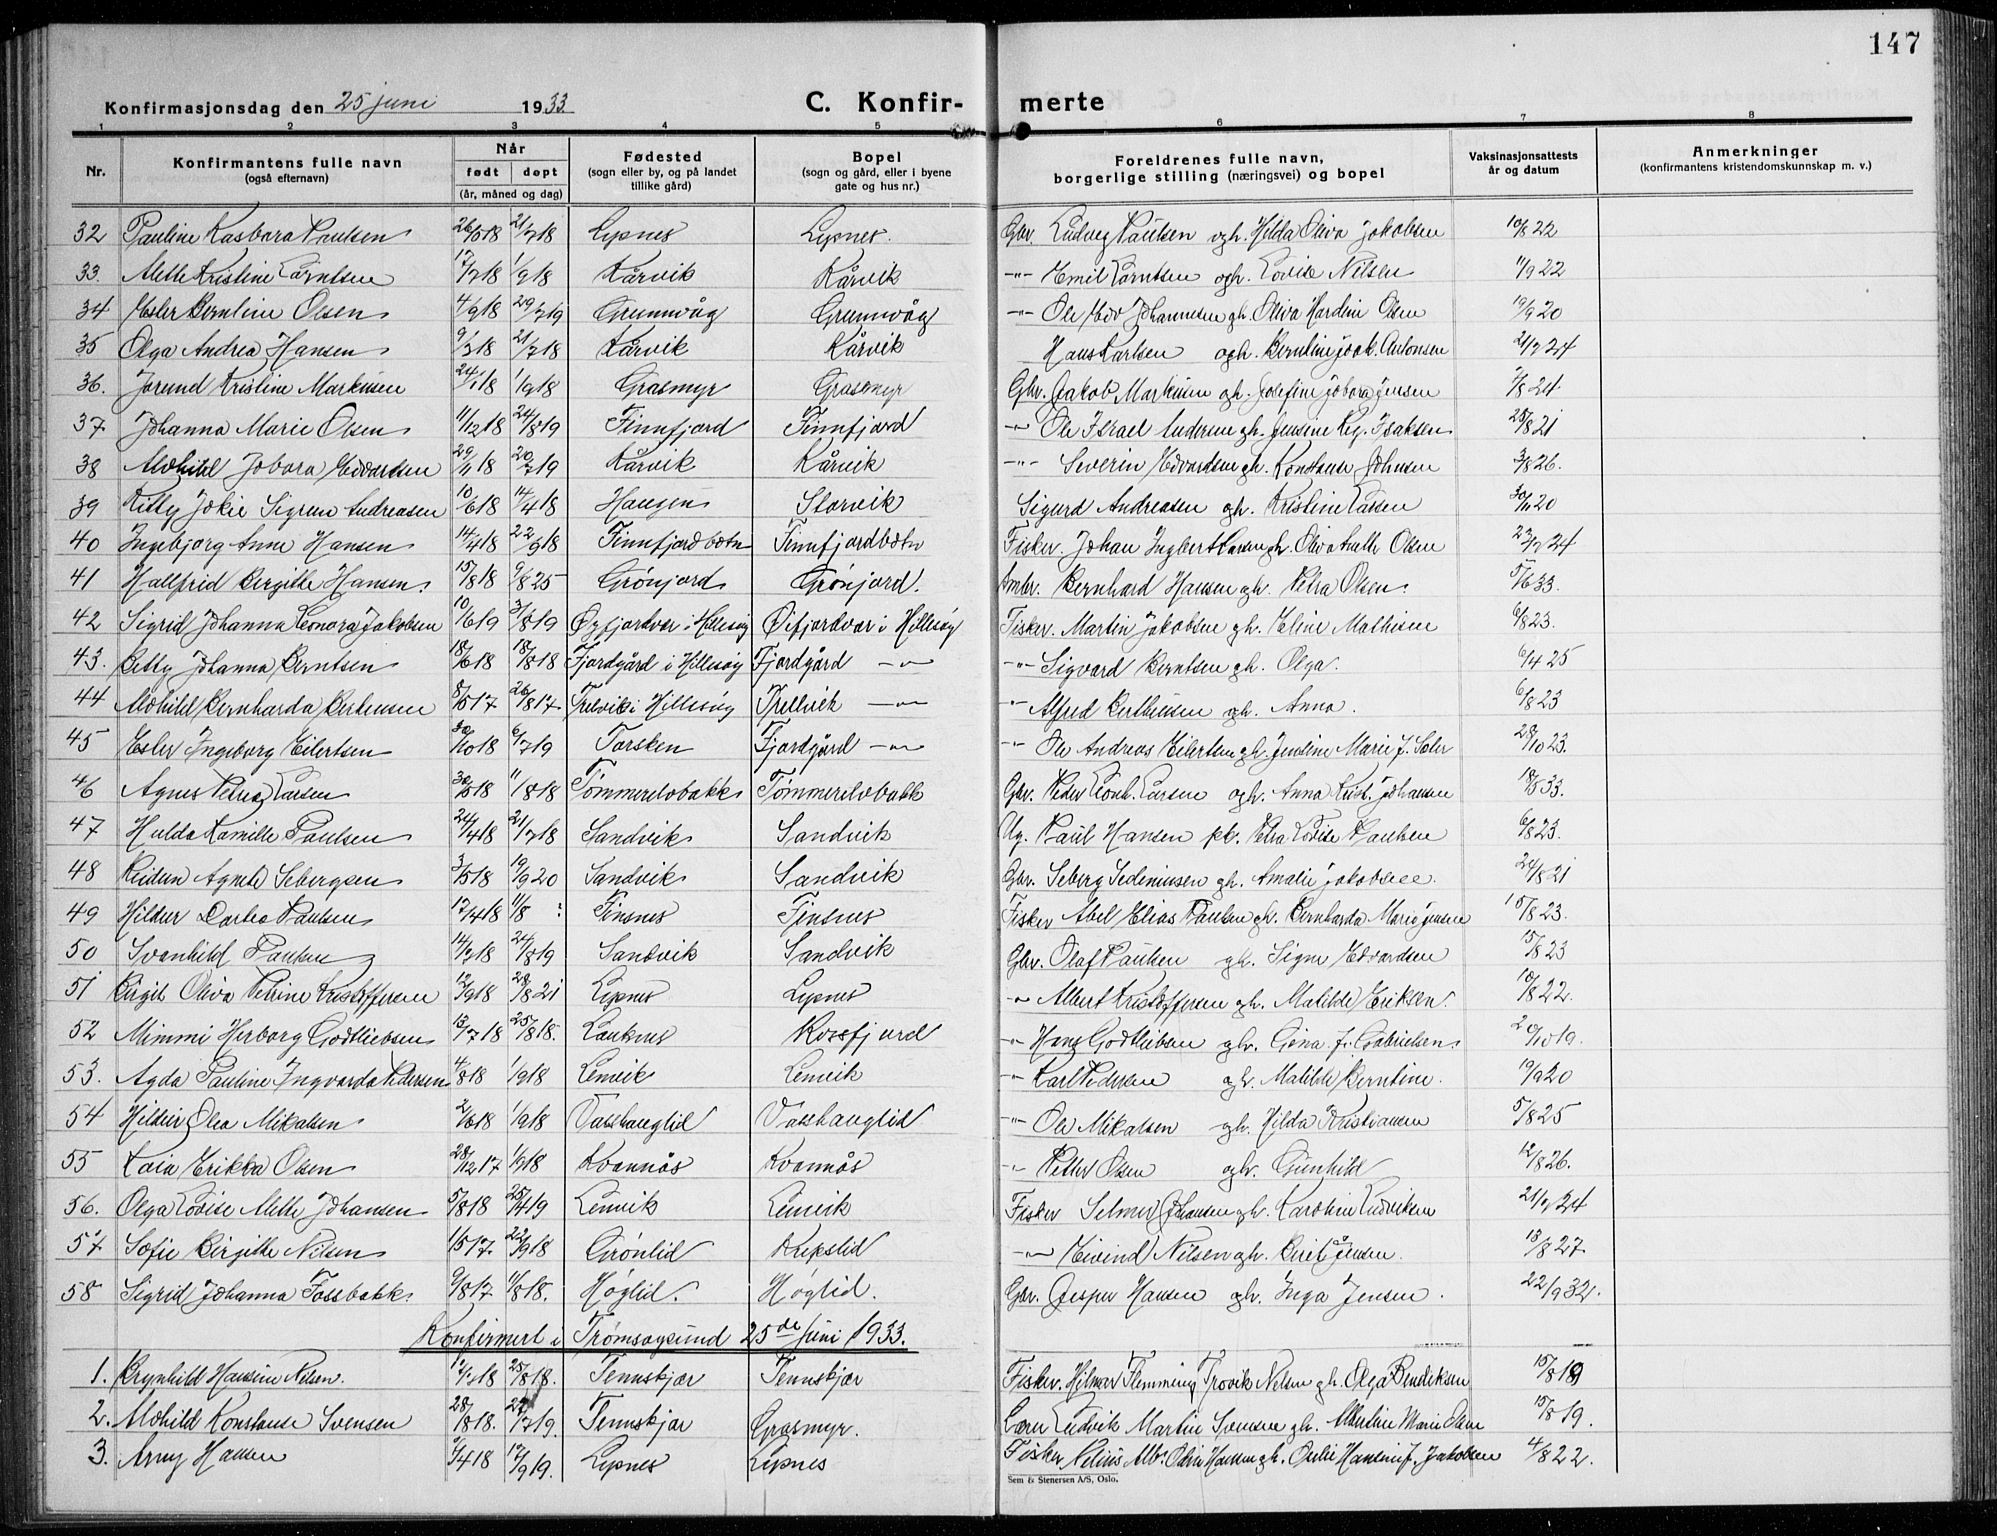 147
Konfirmasjonsdag den 25 juni 1933
C. Konfirmerte
1 2 3 4 5 6 7 8
Nr. Konfirmantens fulle navn (også efternavn) Når født døpt (år, måned og dag) Fødested (sogn eller by, og på landet tillike gård) Bopel (sogn og gård, eller i byene gate og hus nr.) Foreldrenes fulle navn, borgerlige stilling (næringsvei) og bopel Vaksinasjonsattests år og datum Anmerkninger (konfirmantens kristendomskunnskap m. v.)
32 Pauline Kasbara Paulsen 26/5 18 21/7 18 Lysnes Lysnes. Gbr. Ludvig Paulsen ogh. Hilda Oliva Jakobsen 10/8 22
33. Mette Kristine Berntsen 1/9 18 Kårvik Kårvik -"- Emil Berntsen ogh. Lovise Nilsen 11/9 22
34 Ester Berntine Olsen 4/9 18 29/7 19 Grunnvåg Grunnvåg -"- Ole Edv Johannesen gh. Oliva Hardine Olsen 19/9 20
35 Olga Andrea Hansen 9/3 18 21/7 18 Kårvik Kårvik Hans Karlsen ogh. Berntine Joak. Antonsen 21/7 24
36. Jorund Kristine Markusen 24/1 18 1/9 18 Grasmyr Grasmyr Gbr. Jakob Markusen ogh. Josefine Jobara Jensen /8 24.
37 Johanna Marie Olsen 11/12 18 24/8 19 Finnfjord Finnfjord -"- Ole Israel Andersen gh. Jensine Reg. Isaksen 25/8 21
38 Alvhild Jobara Edvardsen 29/11 18 20/7 19 Kårvik Kårvik -"- Severin Edvardsen gh. Konstanse Johnsen 3/8 26.
39 Kitty Jokie Sigrun Andreasen 10/6 18 14/4 18 Haugen Storvik Sigurd Andreasen ogh. Kristine Larsen 30/11 20
40 Ingebjørg Anne Hansen 14/4 18 22/9 18 Finnfjordbotn Finnfjordbotn Fisker. Johan Ingbert Larsen gh. Oliva Olsen 23/7 24
41 Hallfrid Birgithe Hansen. 15/8 18 9/8 25 Grønjord Grønjord. Arbr. Bernhard Hansen ogh. Petra Olsen. 5/6 33.
42 Sigrid Johanna Leonora Jakobsen 10/6 19 31/8 19 Øyfjordvær i Hillesøy Øifjordvær i Hillesøy Fisker. Martin Jakobsen gh. Eline Mathisen 6/8 23.
43. Betty Johanna Berntsen 18/6 18 18/8 18 Fjordgård i Hillesøy Fjordgård -"- -"- Sigvard Berntsen gh. Olga. 6/4 25
44 Alvhild Bernharda Bertheusen 8/5 17 26/8 17. Trelvik i Hillesøy Trellvik -"- -"- Alfred Bertheusen ogh. Anna. 6/8 23
45 Ester Ingeborg Eilertsen 30/10 18 6/7 19 Torsken Fjordgård -"- -"- Ole Andreas Eilertsen gh. Jensine Marie J. 28/10 23.
46 Agnes Petrea Larsen 30/5 18 11/8 18 Tømmerelvbakk Tømmerelvbakk Gbr. Peder Larsen ogh. Anna Krist. Johansen 18/5 33.
47 Hulda Kamilla Paulsen 24/4 18 21/7 18 Sandvik Sandvik Ug. Paul Hansen pk. Petra Lovise Paulsen 6/8 23.
48 Reidun Agnete Sebergsen 3/5 18 19/9 20 Sandvik Sandvik Gbr. Seberg Sedeniussen gh. Amalie Jakobsen. 24/8 21
49 Hildur Dortea Paulsen 17/4 18 11/8 Finsnes Finsnes Fisker Abel Elias Paulsen gh. Bernharda Marie Jensen 15/8 23.
50 Svanhild Paulsen 14/ 18 24/8 19 Sandvik Sandvik Gbr. Olaf Paulsen gh. Signe Edvardsen 15/8 23
51 Birgit Oliva Petrine Kristoffersen 12/9 18 28/8 21 Lysnes Lysnes -"- Albert Kristoffersen gh. Matilde Eriksen. 10/8 22.
52 Mimmi Herborg Godtliebsen 13/7 18 25/8 18. Lauknes Rossfjord -"- Hans Godtliebsen gh. Gina J. Gabrielsen. 20/10 19.
53. Agda Pauline Ingvarda Pedersen 4/8 18 1/9 18 Lenvik Lenvik -"- Karl Pedersen ogh. Matilde Berntine. 19/9 20
54 Hildur Olea Mikalsen 2/6 18 1/9 18 Vasshauglid Vasshauglid -"- Ole Mikalsen ogh. Hilda Kristiansen 5/8 25
55 Kaia Erikka Olsen 28/12 17 1/9 18 Kvannås Kvannås -"- Petter Olsen ogh. Gunhild 12/8 26.
56. Olga Lovise Mette Johansen 5/8 18 25/4 19 Lenvik Lenvik Fisker Selmer Johansen gh. Karoline Ludviksen 21/7 24
57 Sofie Birgithe Nilsen 1/5 17. 22/9 18 Grønlid Kepslid -"- Eivind Nilsen gh. Berit Jensen. 13/8 27.
58 Sigrid Johanna Fossbakk. 9/8 17 11/8 18. Høglid. Høglid. Gbr. Jesper Hansen gh. Inga Jensen. 22/9 32.
Konfirmert i Tromsøysund 25de juni 1933.
1. Brynhild Hansine Nilsen. 18 25/8 18. Tennskjær Tennskjær Fisker. Hilmar Flemming Trovik Nilsen gh. Olga Bendiksen 15/8 19
2. Alvhild Konstanse Svensen 28/8 18. 27/7 19. Tennskjær Grasmyr. Lærer Ludvik Martin Svensen gh. Albertine Marie Olsen 15/8 19.
3. Arny Hansen /4 18 17/9 19. Lysnes Lysnes Fisker Nelius Alb. Odin Hansen gh. Otelie Hansine J. Jakobsen 4/8 22.
Sem & Stenersen A/S, Oslo.